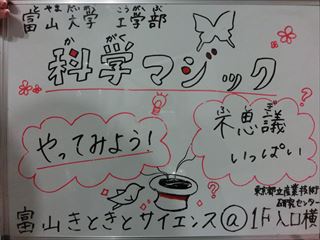 やまだいがく こうがくぶ
富山大学 工学部
か がく
科学マジック
やってみよう!
ふしぎ
不思議
いっぱい
?
東京都立産業技術
研究センター
富山きときとサイエンス@1F入口横